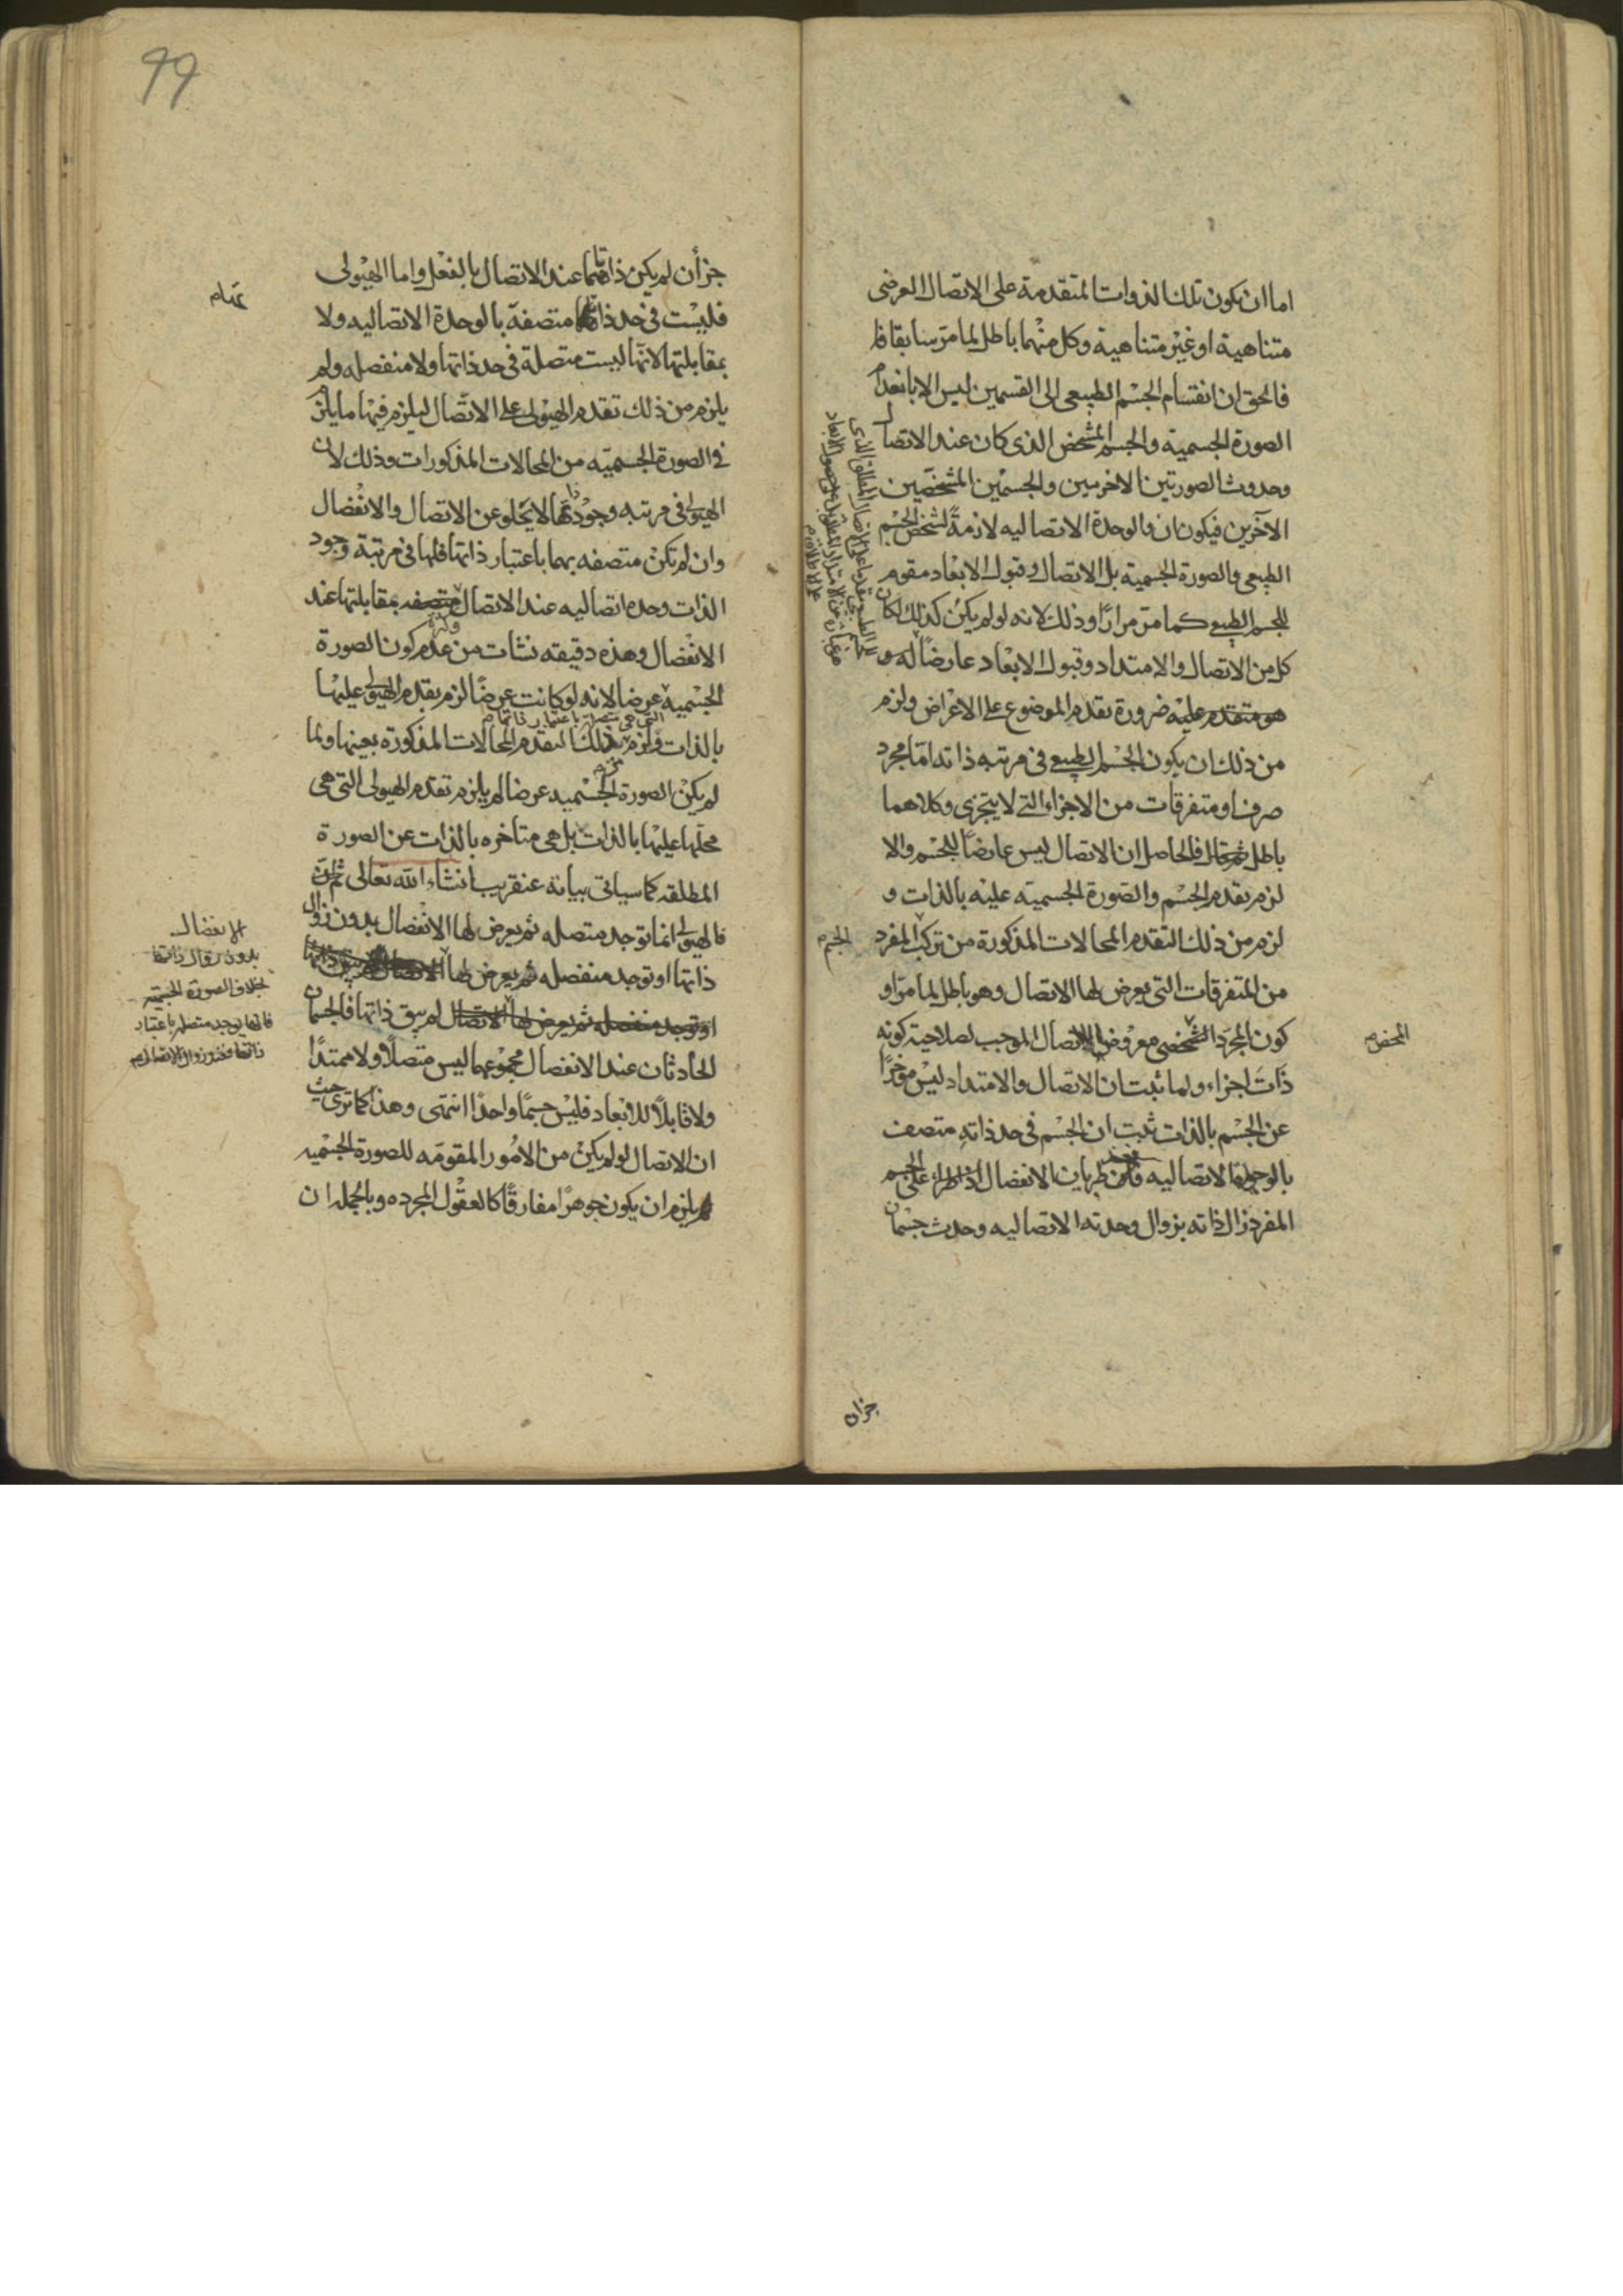 اما ان تكون تلك الذوات المتقدمة على الاتصال العرضى
متناهية او غير متناهية وكل منهما باطل لما مر سابقا فا
فالحق ان انقسام الجسم الطبيعى الى القسمين ليس الا بانعدام
الصورة الجسمية والجسم المشخص الذى كان عند الاتصال
وحدوث الصورتين الاخريين والجسمين المشخصين
الآخرين فيكونان فالوحدة الاتصاليه لازمة لشخص الجسم
الطبيعى والصورة الجسمية بل الاتصال وقبول الابعاد مقوم
للجسم الطبيعى كما مر مرارًا وذلك لانه لو لم يكن كذلك لكان
كل من الاتصال والامتداد وقبول الابعاد عارضاً له و
هو متقدم عليه ضرورة تقدم الموضوع على الاعراض ولزم
من ذلك ان يكون الجسم الطبيعى فى مرتبه ذاته امّا مجرد
صرف او متفرقات من الاجزاء التى لا يتجزى وكلاهما
باطل فالحاصل ان الاتصال ليس عارضاً للجسم والا
لزم تقدم الجسم والصورة الجسميّه عليه بالذات و
لزم من ذلك التقدم المحالات المذكورة من تركب المفرد
الجسم
من المتفرقات التى يعرض لها الاتصال وهو باطل لما مرّ او
كون المجرّد الشخصى معروض الاتصال الموجب لصلاحية كونه
المحض
ذات اجزاء ولما ثبت ان الاتصال والامتداد ليس مؤخرًا
عن الجسم بالذات ثبت ان الجسم فى حد ذاته متصف
بالوحدة الاتصاليه طريان الانفصال اذا طرأ على الجسم
المفرد زال ذاته بزوال وحدته الاتصاليه وحدث جسمان
جزان
99
جزأن لم يكن ذاتاهما عند الاتصال بالفعل واما الهيولى
فليست فى حد ذاتها متصفة بالوحدة الاتصاليه ولا
بمقابلتها لانّها ليست متصلة فى حد ذاتها ولا منفصله ولم
يلزم من ذلك تقدم الهيولى على الاتصال ليلزم فيها ما يلزم
فى الصورة الجسميّه من المحالات المذكورات وذلك لان
الهيولى فى مرتبه وجود ذاتها لا يخلو عن الاتصال والانفصال
وان لم تكن متصفه بهما باعتبار ذاتها فلها فى مرتبة وجود
الذات وحده اتصاليه عند الاتصال متصفه بمقابلتها عند
الانفصال وهذه دقيقه نشات من عدم كون الصورة
الجسميه عرضا لانه لو كانت عرضًا لزم تقدم الهيولى عليها
بالذات ولزم بذلك التقدم المحالات المذكورة بعينها ولما
لم يكن الصورة الجسميه عرضا لم يلزم تقدم الهيولى التى هى
محلها عليها بالذات بل هى متاخره بالذات عن الصورة
المطلقه كما سياتى بيانه عنقريب انشاء الله تعالى
فالهيولى انما توجد متصله ثم يعرض لها الانفصال بدون زوال
ذاتها او توجد منفصله ثم يعرض لها الاتصال
او توجد منفصله ثم يعرض لها الاتصال لم يبق ذاتها فالجسمان
الحادثان عند الانفصال مجموعهما ليس متصلًا ولا ممتدًا
ولا قابلًا للابعاد فليس جسمًا واحدًا انتهى وهذا كما ترى حيث
ان الاتصال لو لم يكن من الامور المقومه للصورة الجسميه
لم يلزم ان يكون جوهرًا مفارقًا كالعقول المجرده وبالجمله ان
الانفصال
بدون زوال ذاتها
بخلاف الصورة الجسميه
فانها يوجد متصله باعتبار